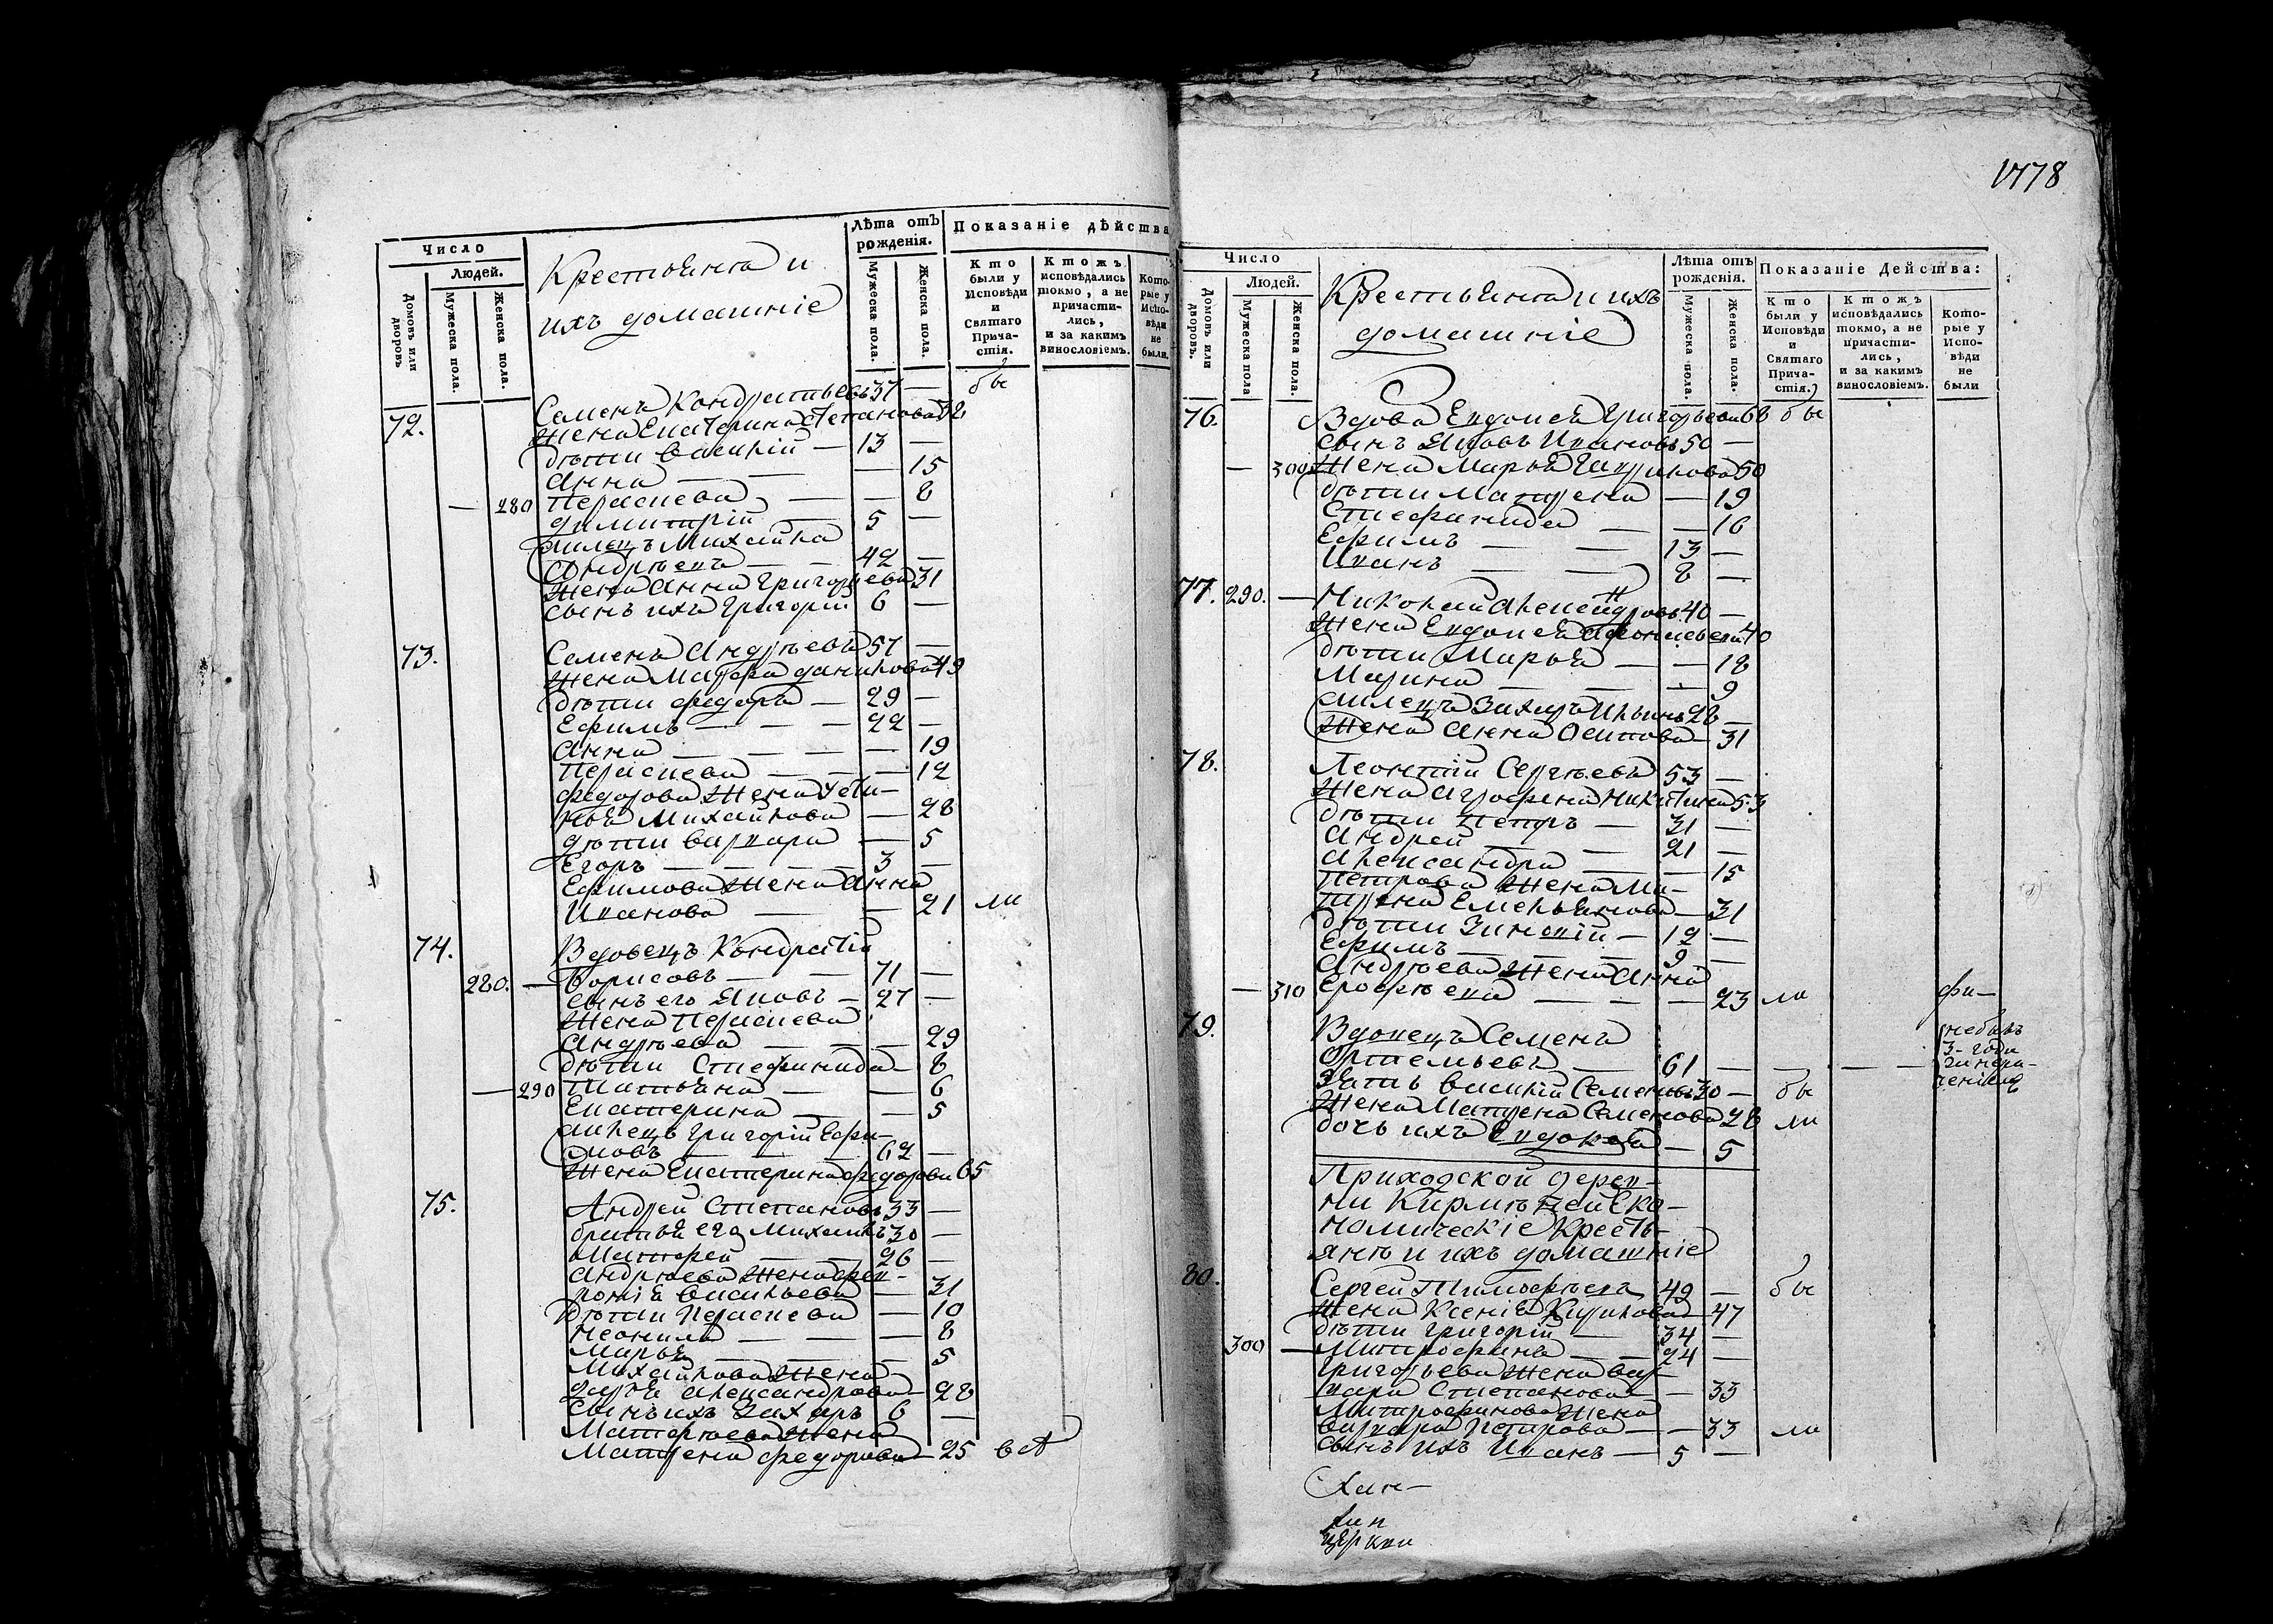 1778
Число
Людей.
Домовъ или дворовъ
Мужеска пола.
Женска пола.
Крестьяна и
ихъ домашніе
Лѣта отъ рожденія.
Мужеска пола.
Женска пола.
Показаніе дѣйства
Кто были у Исповѣди и Святаго Причастія.
Ктожъ исповѣдались токмо, а не причастились, и за какимъ винословіемъ.
Которые у Исповѣди не были.
72. Семенъ Кондратьевъ 37 — бы
Жена Екатерина Степанова 32
дѣти Василій — 13 —
Анна — — — 15
280 Параскева — — 8
димитрій — 5 —
Михайла
Андрѣевъ — — 42 —
Жена Анна Григорьева 31
сынъ ихъ Григорій 6 —
73. Семенъ Андрѣевъ 57 —
Жена Марфа данилова 49
дѣти федоръ — 29 —
Ефимъ — — — 22 —
Анна — — — — 19
Параскева — — — 12
федорова Жена Уети-
нья Михайлова — 28
дѣти варвара — 5
Егоръ — — — 3 —
Ефимова Жена Анна
Иванова — — 21 ли
74. Вдовецъ Кондратій
280. — Борисовъ — — 71 —
сынъ его Яковъ — 27 —
Жена Параскева
Андрѣева — — — 29
дѣти Стефанида — 8
— 290 Татьяна — — 6
Екатерина — — 5
Григорій Ефи-
мовъ — — — 62 —
Жена Екатерина федорова 65
75. Андрей Степановъ 33 —
братья его Михайлъ 30 —
Матфей — — 26 —
Андрѣева Жена фев-
ронія васильева — 31
дѣти Параскева — 10
неонила — — — 8
Марья — — — 5
Михайлова Жена
дарья александрова — 28
сынъ ихъ Захаръ 6 —
Матфѣева Жена
Матрена федорова — 25 вст
Число
Людей.
Домовъ или дворовъ.
Мужеска пола
Женска пола.
Крестьяна и ихъ
домашніе
Лѣта отъ рожденія.
Мужеска пола.
Женска пола.
Показаніе Действа:
Кто были у Исповѣди и Святаго Причастія.
Ктожъ исповѣдались токмо, а не причастились, и за какимъ винословіемъ.
Которые у Исповѣди не были
76. Вдова Евдокия Григорьева 68 бы
сынъ Яковъ Ивановъ 50 —
— 300 Жена Марья Гаврилова 50
дѣти Матрена — 19
Стефанида — — 16
Ефимъ — — 13 —
Иванъ — — 8 —
77. 290. — Николай Александровъ 40 —
Жена Евдокия 40
дѣти Марья — — 18
Марина — — — 9
Захаръ Ильинъ 28 —
Жена Анна Осипова — 31
78. Леонтій Сергѣевъ 53 —
Жена Аграфена Никитина 53
дѣти Петръ — 31 —
Андрей — — 21 —
Александра — — 15
Петрова Жена Ма-
трена Емельянова — 31
дѣти Зиновій — 12 —
Ефимъ — — — 9 —
Андрѣева Жена Анна
— 310 Ерофѣева — — — 23 ли
79. Вдовецъ Семенъ
Артемьевъ — 61 — — — — небылъ
3 года
Зять Василій Семеновъ 30 — бы
Жена Матрена Семенова 28 ли
дочь ихъ Евдокея — 5
Приходской дерев-
ни Кирмѣтей Еко-
номическіе Кресть-
янѣ и ихъ домашніе
80. Сергей Тимофѣевъ 49 — бы
Жена Ксенія Кирилова — 47
дѣти Григорій — 34 —
300 — Митрофанъ — — 24 —
Григорьева Жена вар-
вара Степанова — 33
Митрофанова Жена
варвара Петрова — — 33 ли
сынъ ихъ Иванъ — 5 —
церкви